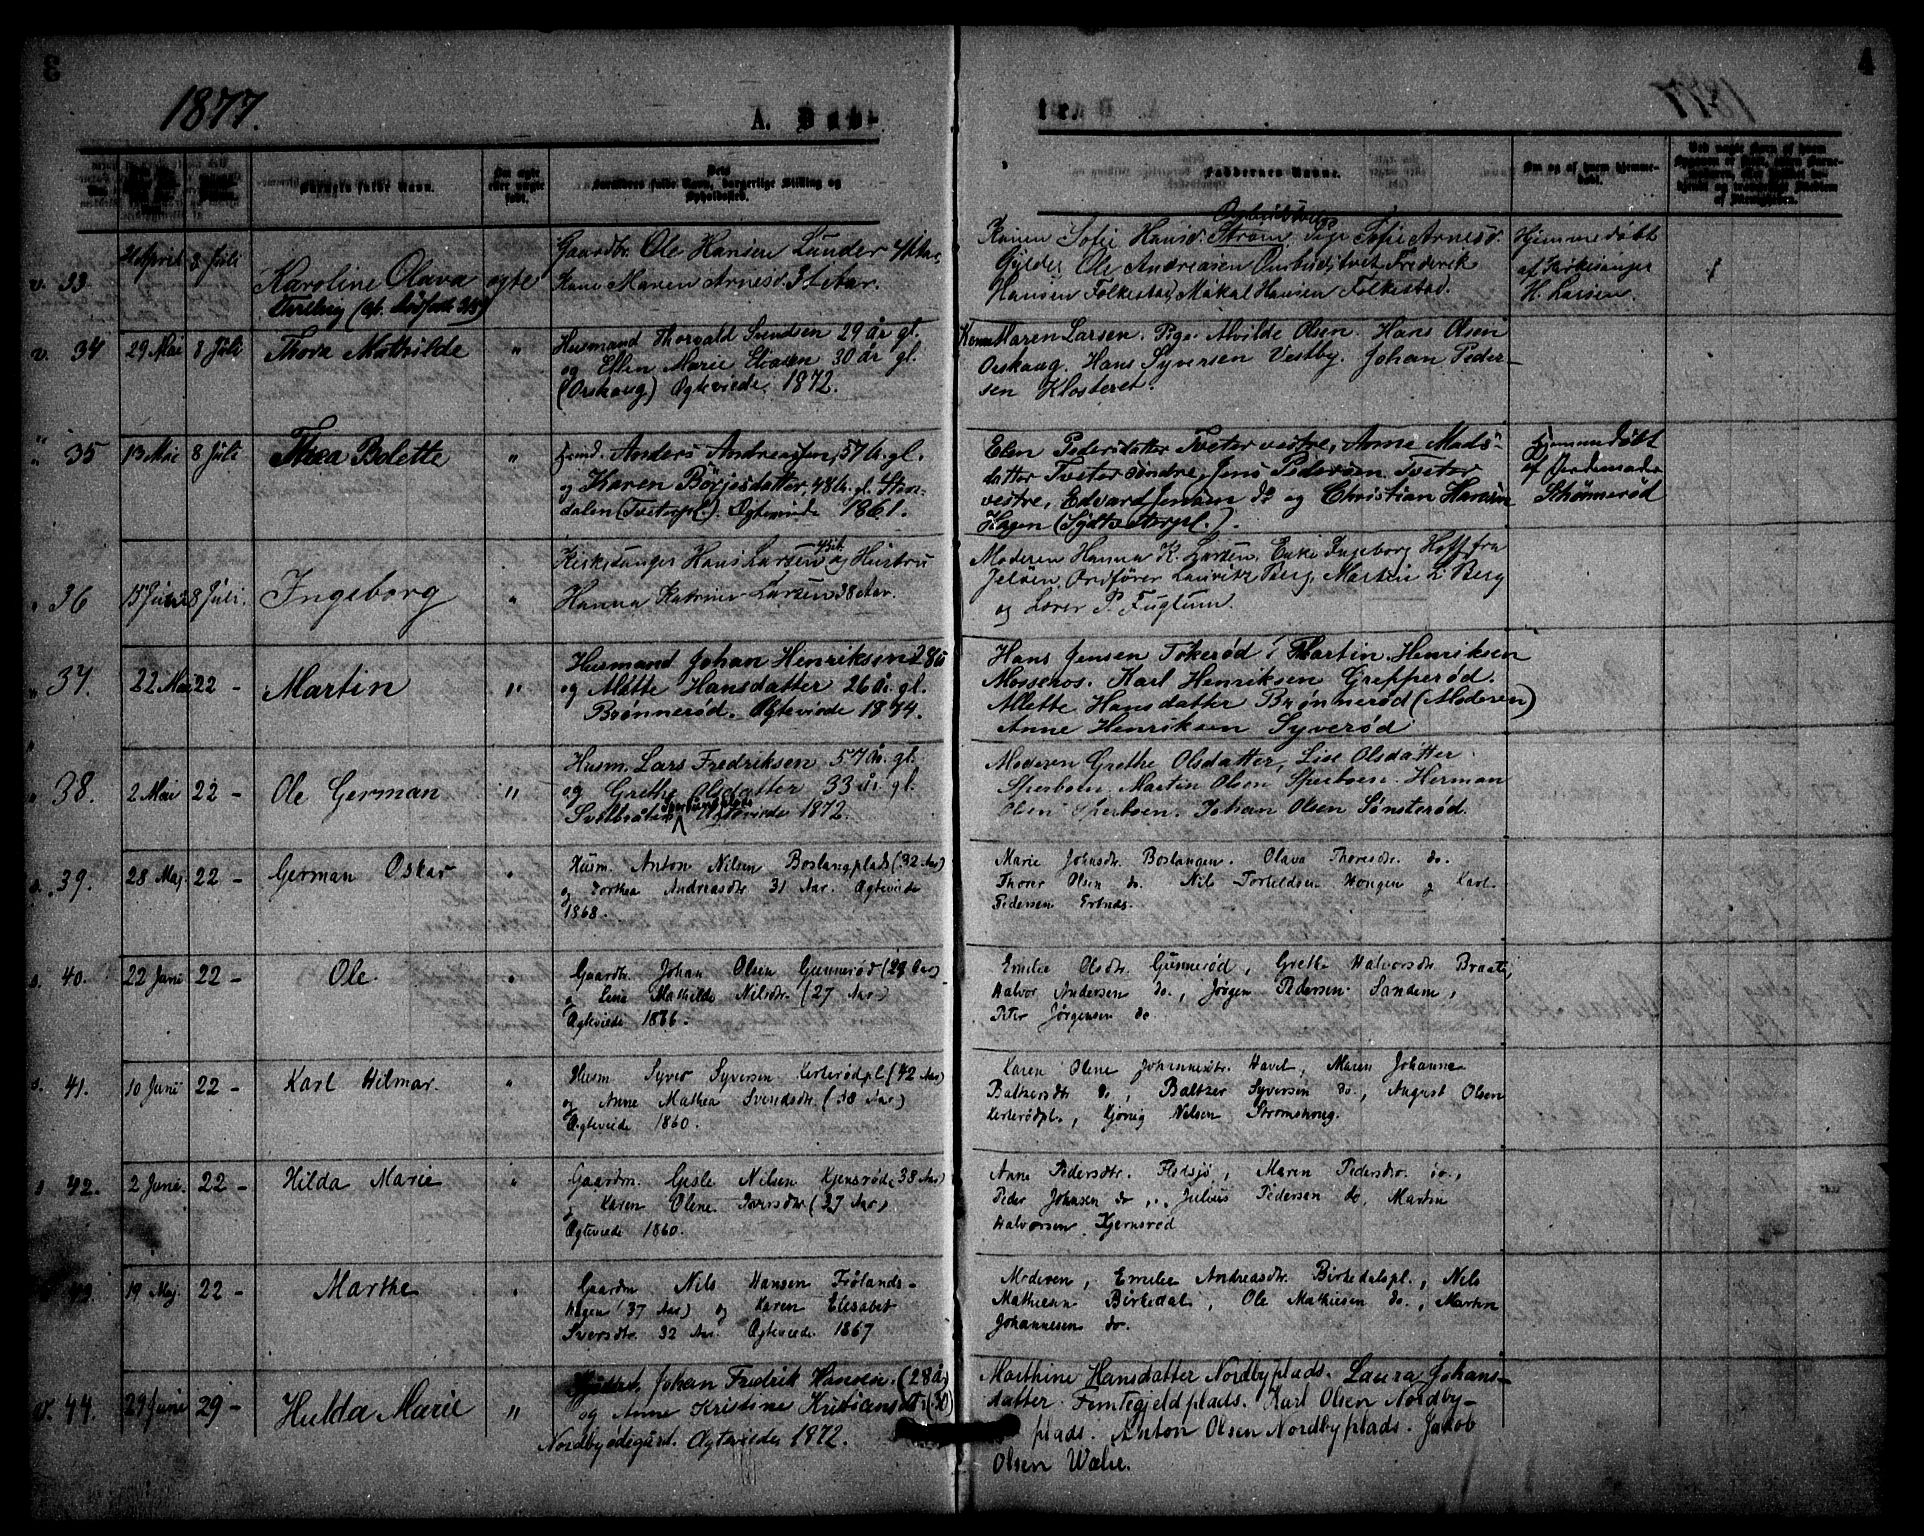 3
4
1877.
A. Døbte.
Barnets fulde Navn.
Faddernes Navne.
33
8 Juli
Karoline Olava
ægte
Gaardbr. Ole Hansen Lunder
Kone Maren Arnesd.
Hansen Folkestad, Mikal Hansen Folkestad.
Hjemmedøbt
af Kirkesanger
H. Larsen.
34
29 Mai
8 Juli
Thora Mathilde
"
Husmand Thorvald Svendsen 29 år gl.
og Ellen Marie 30 år gl.
(Orskaug) Ægteviede 1872.
Maren Larsen. Pige Alvilde Olsen. Hans Olsen
Orskaug. Hans Syversen Vestby. Johan Peder-
sen Klosteret.
35
13 Mai
8 Juli
Thea Bolette
"
Anders Andreassen, 57 å. gl.
og Karen Börjesdatter, 48 å. gl. Sten-
dalen (Tveterpl.). Ægteviede 1861.
Elen Pedersdatter Tveter vestre, Anne Mads-
datter Tveter söndre, Jens Pedersen Tveter
vestre, Edvard Jensen do og Christian Hansen
Hagen
Hjemmedöbt
af Jordemoder
Strömmeröd
36
15 Juni
8 Juli.
Ingeborg
"
Kirkesanger Hans Larsen og Hustru
Hanna Katrine Larsen 38 Aar.
Moderen Hanna K. Larsen, Enke Ingeborg Hoff fra
Jelöen, Ordfører Lauritz Berg, Martin L. Berg
og Lærer P. Fuglum.
37.
22 Mai
22 -
Martin
"
Husmand Johan Henriksen 28 å
og Alette Hansdatter 26 år. gl.
Brønnerød. Ægteviede 1874.
Hans Jensen Tokerød, Martin Henriksen
Mosseros. Karl Henriksen Grepperød.
Allette Hansdatter Brønnerød (Moderen)
Anne Henriksen Syverød
38.
2 Mai
22 -
Ole German
"
Husm. Lars Fredriksen 57 år. gl.
og Grethe Olsdatter 33 år. gl.
Ægteviede 1872.
Moderen Grethe Olsdatter, Lise Olsdatter
Sperboen. Martin Olsen Sperboen. Herman
Olsen Sperboen. Johan Olsen Sønsterød.
39.
28 Maj
22 -
German Oskar
"
Husm. Anton Nilsen Boslangplads (32 Aar)
og Dorthea Andreasdtr. 31 Aar. Ægteviede
1868.
Marie Johnsdtr. Boslangen. Olava Thoresdtr. do.
Thorer Olsen do. Nils Torkildsen Hongen og Karl
Pedersen
40.
22 Juni
22 -
Ole
"
Gaardbr. Johan Olsen Gunnerød (29 Aar)
og Lina Mathilde Nilsdtr. (27 Aar)
Ægteviede 1876.
Emelie Olsdtr. Gunnerød, Grethe Halvorsdtr. Braate,
Halvor Andersen do., Jørgen Pedersen Sandem,
Peter Jørgensen do.
41.
10 Juni
22 -
Karl Hilmar.
"
Husm. Syver Syversen Kerterødpl. (42 Aar)
og Anne Mathea Svendsdtr. (38 Aar)
Ægteviede 1860.
Karen Olene Johannesdtr. Havel, Maren Johanne
Baltzersdtr do, Baltzer Syversen do., August Olsen
Kerterødpl., Kjönig Nilsen Strömskoug.
42.
2 Juni.
22 -
Hilda Marie
"
Gaardm. Gisle Nilsen Kjensrød (38 Aar)
og Karen Olene Iversdtr. (37 Aar).
Ægteviede 1860.
Anne Pedersdtr. Fledsjø, Maren Pedersdtr. do.,
Peder Johnsen do., Julius Pedersen do, Martin
Halvorsen Kjernsrød
43.
19 Maj.
22 -
Marthe
"
Gaardm Nils Hansen Frölands-
hagen (37 Aar) og Karen Elisabet
Iversdtr. 32 Aar. Ægteviede 1867
Moderen, Emelie Andreasdtr. Birkedalspl., Nils
Mathiesen Birkedal, Ole Mathiesen do., Martin
Johannesen do.
44.
29 Juni
29 -
Hulda Marie
"
Johan Fredrik Hansen. (28 år)
og Anne Kristine Kristiansdt. (30)
Nordbyødegård. Ægteviede 1872.
Marthine Hansdatter Nordbyplads. Laura Johans-
datter Femtegjeldplads. Karl Olsen Nordby-
plads. Anton Olsen Nordbyplads. Jakob
Olsen Wæle.